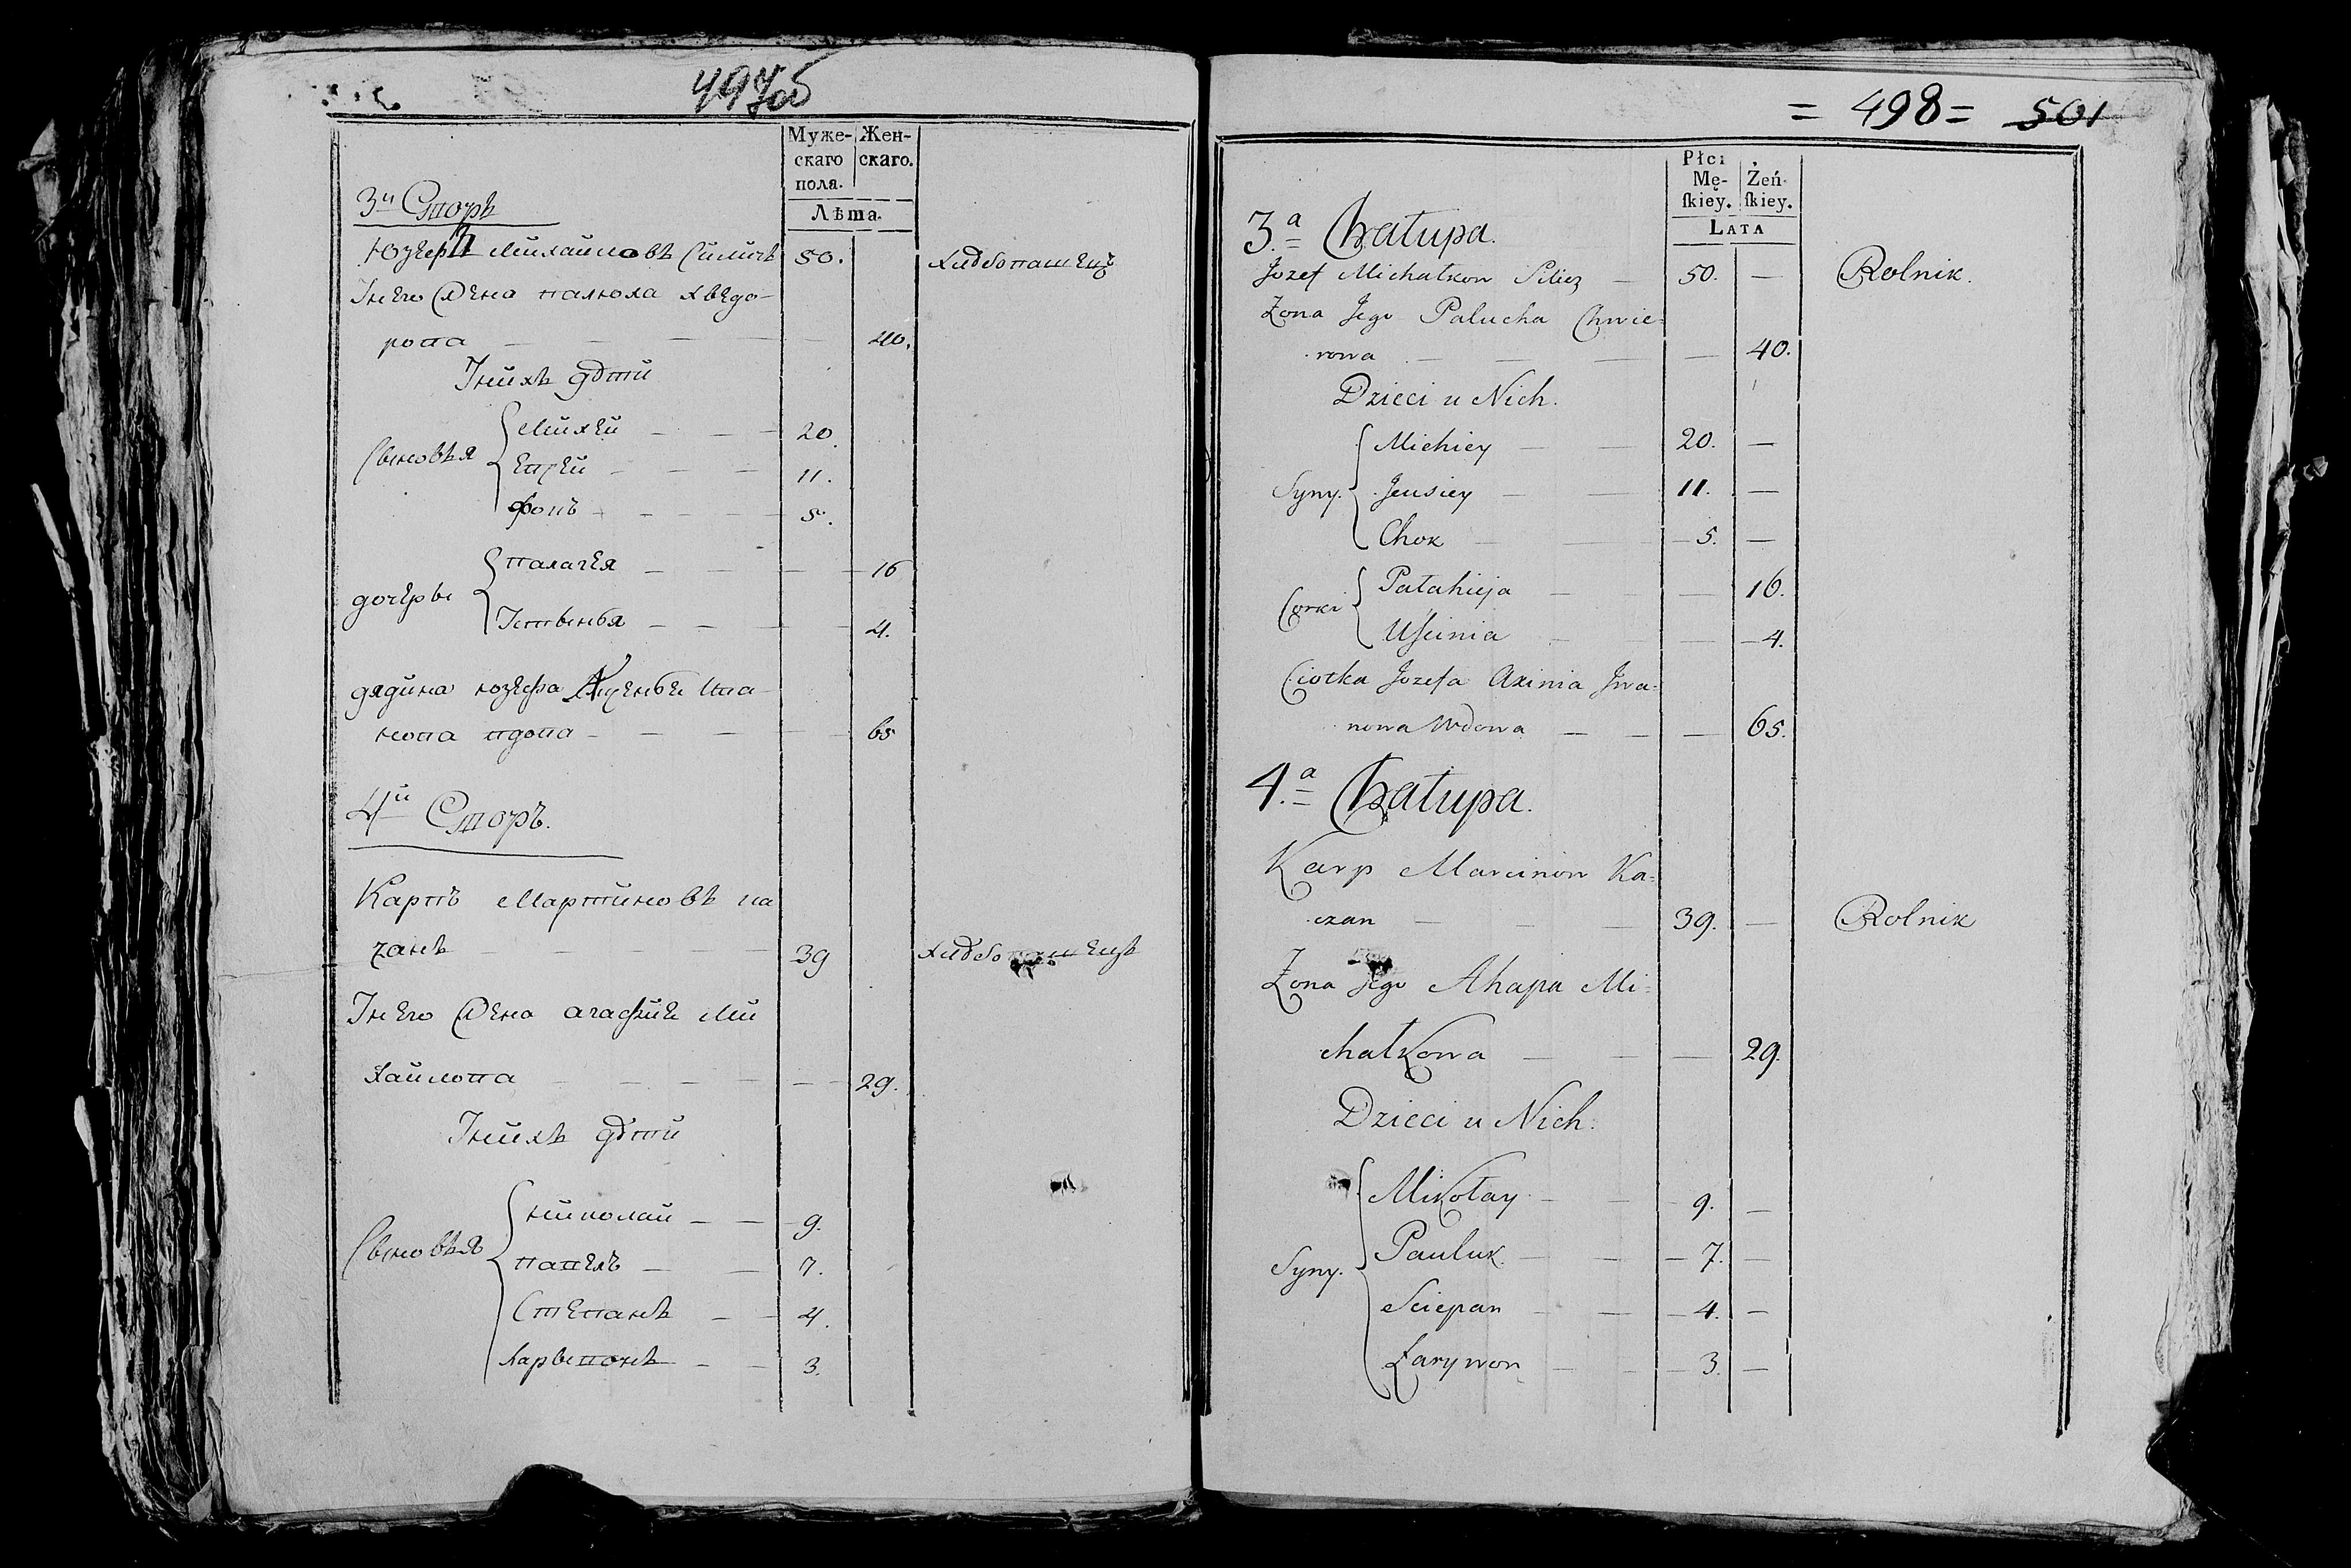 497об
Муже-
скаго
пола.
Жен-
скаго.
Лѣта.
3й Дворъ
Юзефъ Михайловъ 50. хлѣбопашецъ
У него жена палюха хведо-
рова — 40.
У нихъ дѣти
Сыновья
Михей — 20.
11.
5.
дочерьи
палагея — 16
4.
дядина юзефа Ива-
нова вдова — 65
4й Дворъ.
Карпъ Мартиновъ ка
чанъ — 39 хлѣбопашецъ
У него жена агафия Ми
хайлова — 29.
У нихъ дѣти
Сыновья
николай — 9.
павелъ — 7.
Степанъ — 4.
ларывонъ — 3.
= 498 = 501
Płci
Mę-
ſkiey.
Żeń-
ſkiey.
LATA
3.a Chałupa.
Jozef Michałkow Silicz — 50. — Rolnik.
Zona Jego Palucha Chwie-
rowa — — 40.
Dzieci u Nich.
Syny.
Michiey — 20. —
Jeusiey — 11. —
Chok — 5. —
Corki
Patahieja — — 16.
Uſcinia — — 4.
Ciotka Jozefa Axinia Jwa-
nowa Wdowa — — 65.
4.a Chałupa.
Karp Marcinow Ka-
czan — 39. — Rolnik
Zona Jego Ahapa Mi-
chałkowa — — 29.
Dzieci u Nich.
Syny.
Mikołay — 9. —
Pauluk — 7. —
Sciepan — 4. —
Łarywon — 3. —